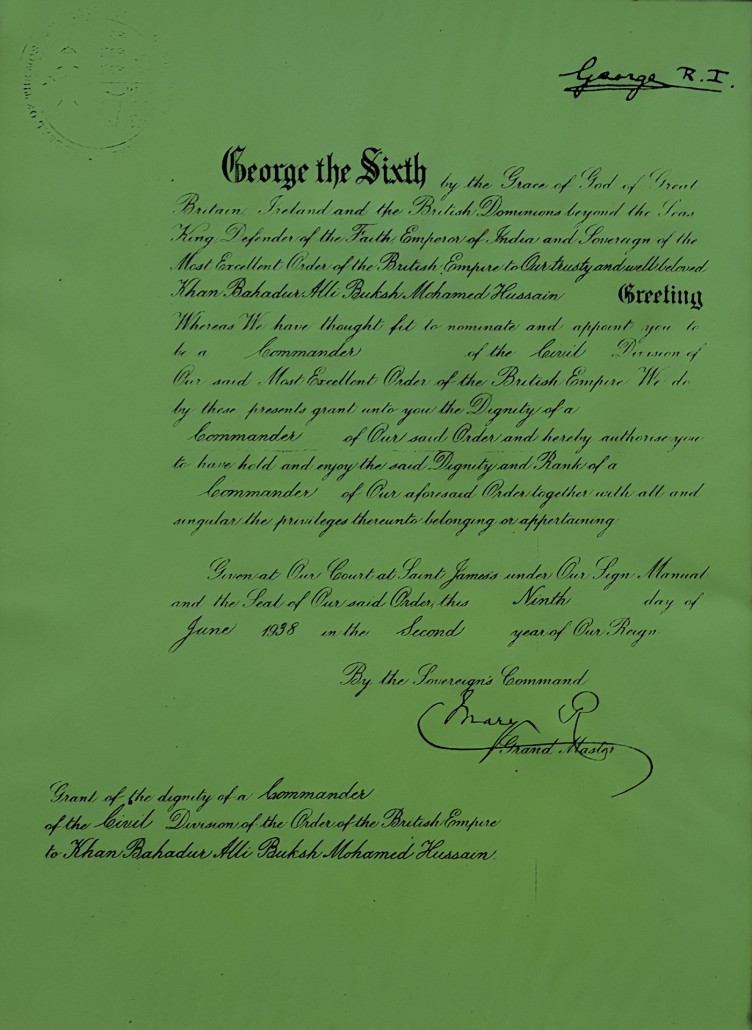 George R. I.
George the Sixth by the Grace of God of Great
Britain Ireland and the British Dominions beyond the Seas
King Defender of the Faith Emperor of India and Sovereign of the
Most Excellent Order of the British Empire to Our trusty and well beloved
Khan Bahadur Alli Buksh Mohamed Hussain Greeting
Whereas We have thought fit to nominate and appoint you to
be a Commander of the Civil Division of
Our said Most Excellent Order of the British Empire We do
by these presents grant unto you the Dignity of a
Commander of Our said Order and hereby authorise you
to have hold and enjoy the said Dignity and Rank of a
Commander of Our aforesaid Order together with all and
singular the privileges thereunto belonging or appertaining
Given at Our Court at Saint James's under Our Sign Manual
and the Seal of Our said Order, this Ninth day of
June 1938 in the Second year of Our Reign
By the Sovereign's Command
Mary R
Grand Master
Grant of the dignity of a Commander
of the Civil Division of the Order of the British Empire
to Khan Bahadur Alli Buksh Mohamed Hussain.